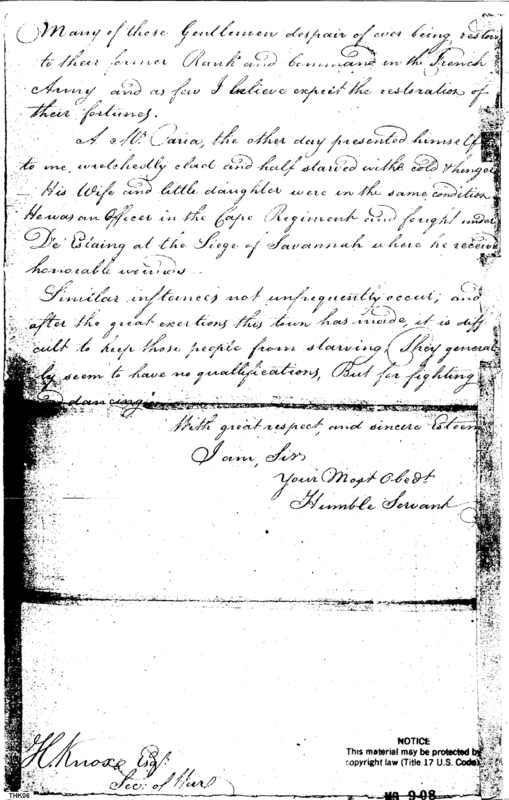 Many of these Gentlemen despair of ever being restor
to their former Rank and Command in the French
Army and as few I believe expect the restoration of
their fortunes.
A Mr. Caria, the other day presented himself
to me, wretchedly clad and half starved with cold & hunger
- His Wife and little daughter were in the same condition
He was an Officer in the Cape Regiment and fought under
De Estaing at the Siege of Savannah where he receive
honorable wounds -
Similar instances not unfrequently occur; and
after the great exertions this town has made, it is diffi
cult to keep those people from starving. They general
ly seem to have no quallifications, But for fighting
dancing.
With great respect, and sincere Esteem
I am, Sir
Your Most Obedt
Humble Servant
H. Knox Esqr.
Secy. of War
NOTICE
This material may be protected by
copyright law (Title 17 U.S. Code)
THK06
9-08